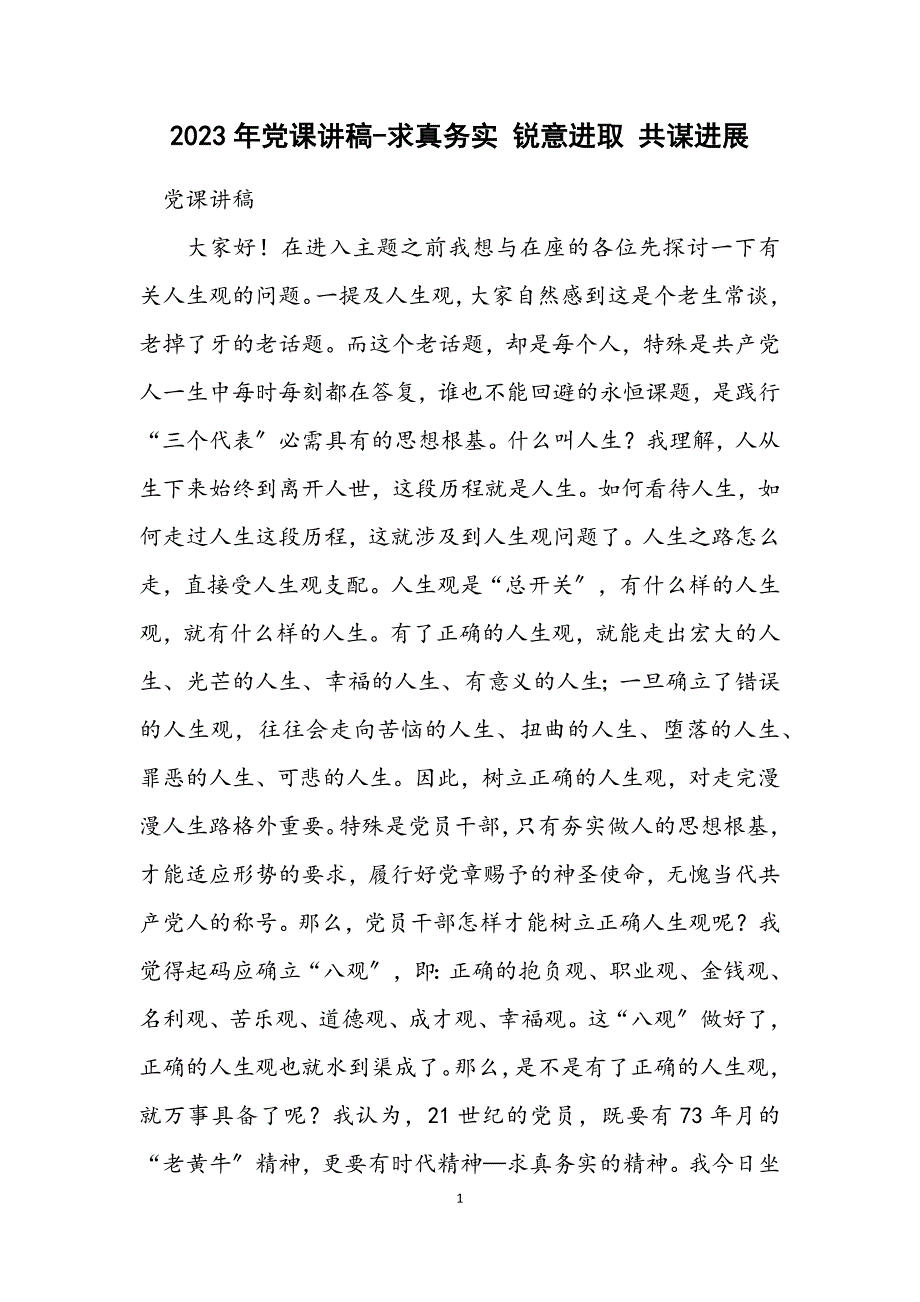 2023年党课讲稿-求真务实 锐意进取 共谋进展
党课讲稿
大家好！在进入主题之前我想与在座的各位先探讨一下有
关人生观的问题。一提及人生观，大家自然感到这是个老生常谈，
老掉了牙的老话题。而这个老话题，却是每个人，特殊是共产党
人一生中每时每刻都在答复，谁也不能回避的永恒课题，是践行
“三个代表〞必需具有的思想根基。什么叫人生？我理解，人从
生下来始终到离开人世，这段历程就是人生。如何看待人生，如
何走过人生这段历程，这就涉及到人生观问题了。人生之路怎么
走，直接受人生观支配。人生观是“总开关〞，有什么样的人生
观，就有什么样的人生。有了正确的人生观，就能走出宏大的人
生、光芒的人生、幸福的人生、有意义的人生；一旦确立了错误
的人生观，往往会走向苦恼的人生、扭曲的人生、堕落的人生、
罪恶的人生、可悲的人生。因此，树立正确的人生观，对走完漫
漫人生路格外重要。特殊是党员干部，只有夯实做人的思想根基，
才能适应形势的要求，履行好党章赐予的神圣使命，无愧当代共
产党人的称号。那么，党员干部怎样才能树立正确人生观呢？我
觉得起码应确立“八观〞，即：正确的抱负观、职业观、金钱观、
名利观、苦乐观、道德观、成才观、幸福观。这“八观〞做好了，
正确的人生观也就水到渠成了。那么，是不是有了正确的人生观，
就万事具备了呢？我认为，21世纪的党员，既要有73年月的
“老黄牛〞精神，更要有时代精神—求真务实的精神。我今日坐
1